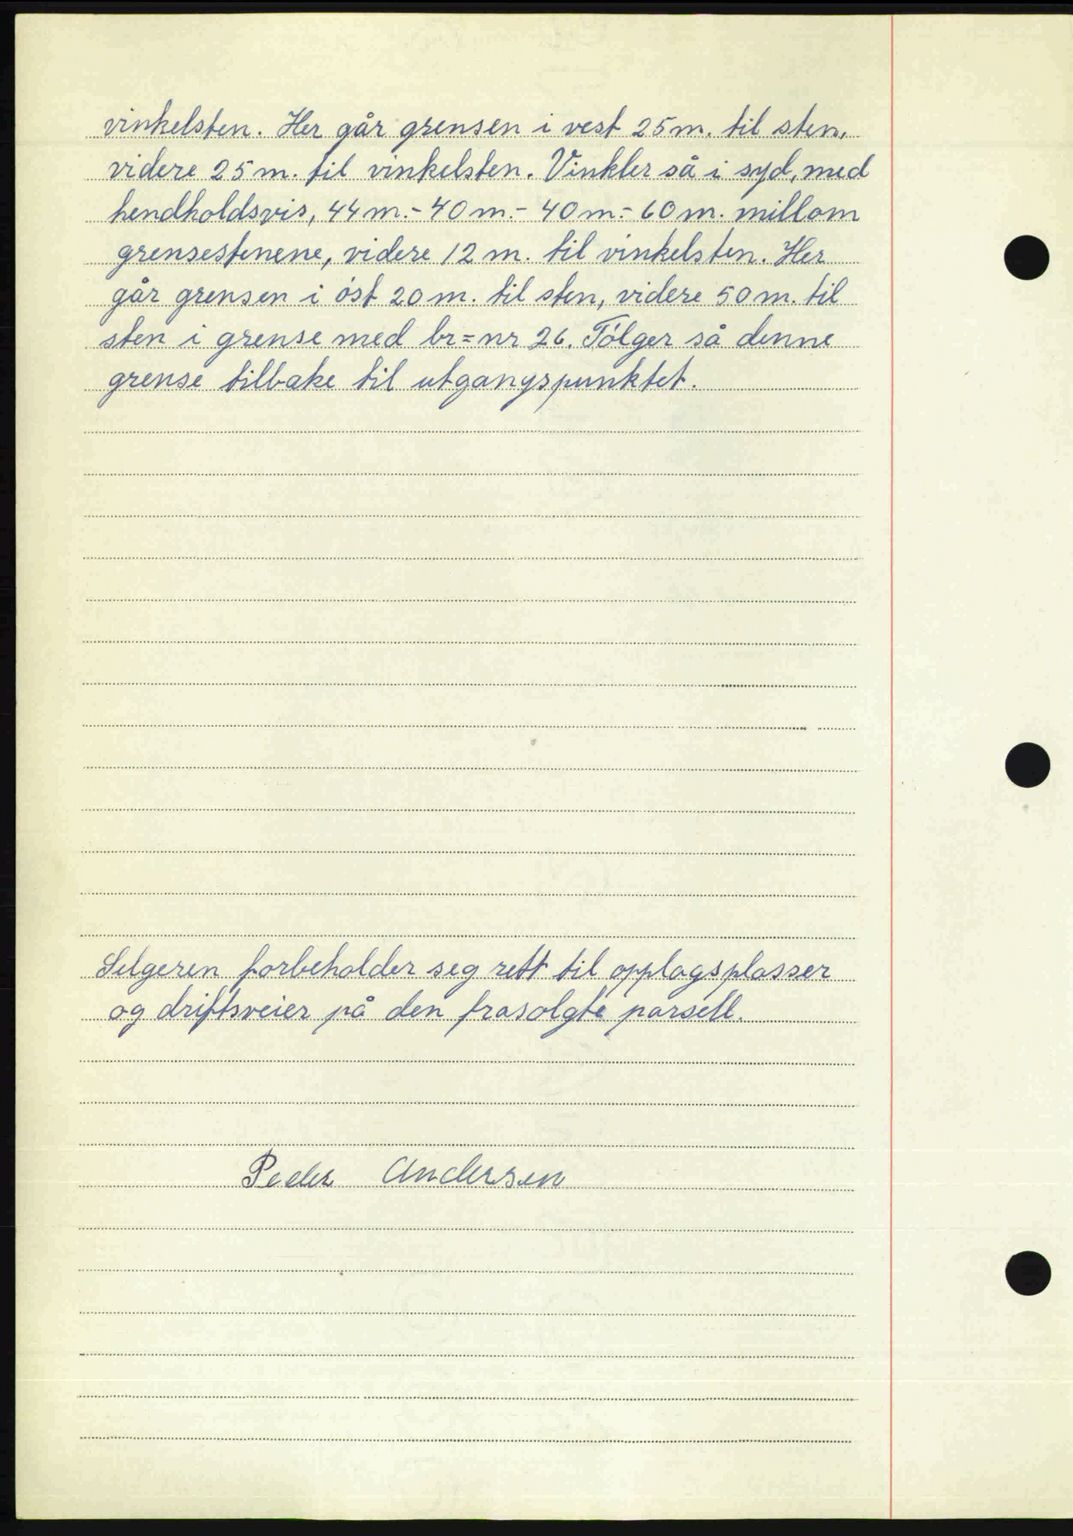 vinkelsten. Her går grensen i vest 25 m. til sten,
videre 25 m. til vinkelsten. Vinkler så i syd, med
hendholdsvis, 44 m. - 40 m. - 40 m. - 60 m. millom
grensestenene, videre 12 m. til vinkelsten. Her
går grensen i óst 20 m. til sten, videre 50 m. til
sten i grense med br=nr 26. Fólger så denne
grense tilbake til utgangspunktet.
Selgeren forbeholder seg rett til opplagsplasser
og driftsveier på den frasolgte parsell.
Peder Andersen